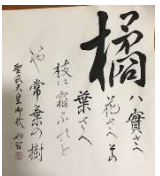 橘
ハ實さへ
花さへその
葉さへ
枝に霜ふれど
いや常葉の樹
聖武天皇御歌